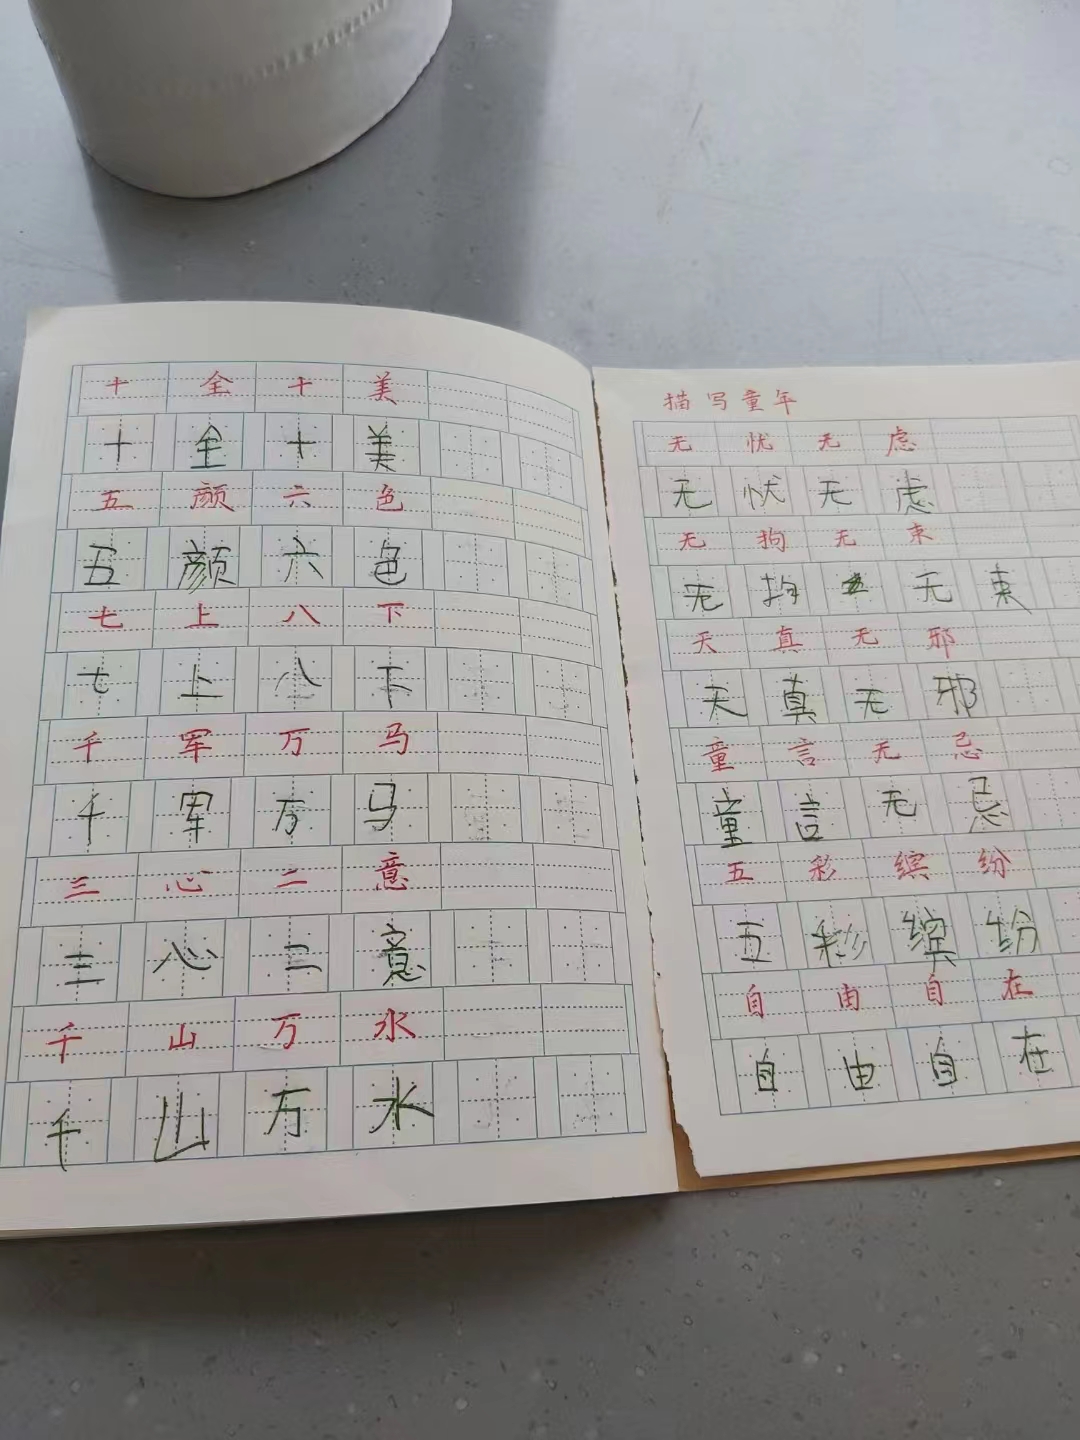 十全十美
十全十美
五颜六色
五颜六色
七上八下
七上八下
千军万马
千军万马
三心二意
三心二意
千山万水
千山万水
描写童年
无忧无虑
无忧无虑
无拘无束
无拘无束
天真无邪
天真无邪
童言无忌
童言无忌
五彩缤纷
五彩缤纷
自由自在
自由自在